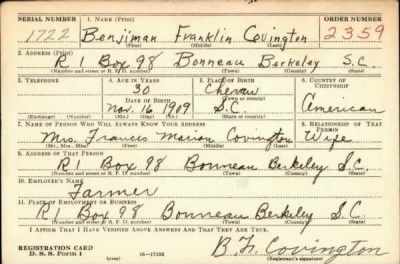 SERIAL NUMBER 1. NAME (Print) ORDER NUMBER
1722 Benjiman Franklin Covington 2359
(First) (Middle) (Last)
2. ADDRESS (Print)
R 1 Box 98 Bonneau Berkeley S.C.
(Number and street or R. F. D. number) (Town) (County) (State)
3. TELEPHONE 4. AGE IN YEARS 5. PLACE OF BIRTH 6. COUNTRY OF CITIZENSHIP
30 Cheraw
DATE OF BIRTH (Town or county)
Nov. 16 1909 S.C. American
(Exchange) (Number) (Mo.) (Day) (Yr.) (State or country)
7. NAME OF PERSON WHO WILL ALWAYS KNOW YOUR ADDRESS 8. RELATIONSHIP OF THAT PERSON
Mrs. Frances Marian Covington Wife
(Mr., Mrs., Miss) (First) (Middle) (Last)
9. ADDRESS OF THAT PERSON
R 1 Box 98 Bonneau Berkeley S.C.
(Number and street or R. F. D. number) (Town) (County) (State)
10. EMPLOYER'S NAME
Farmer
11. PLACE OF EMPLOYMENT OR BUSINESS
R 1 Box 98 Bonneau Berkeley S.C.
(Number and street or R. F. D. number) (Town) (County) (State)
I AFFIRM THAT I HAVE VERIFIED ABOVE ANSWERS AND THAT THEY ARE TRUE.
REGISTRATION CARD
D. S. S. Form 1 (over) B. F. Covington
(Registrant's signature)